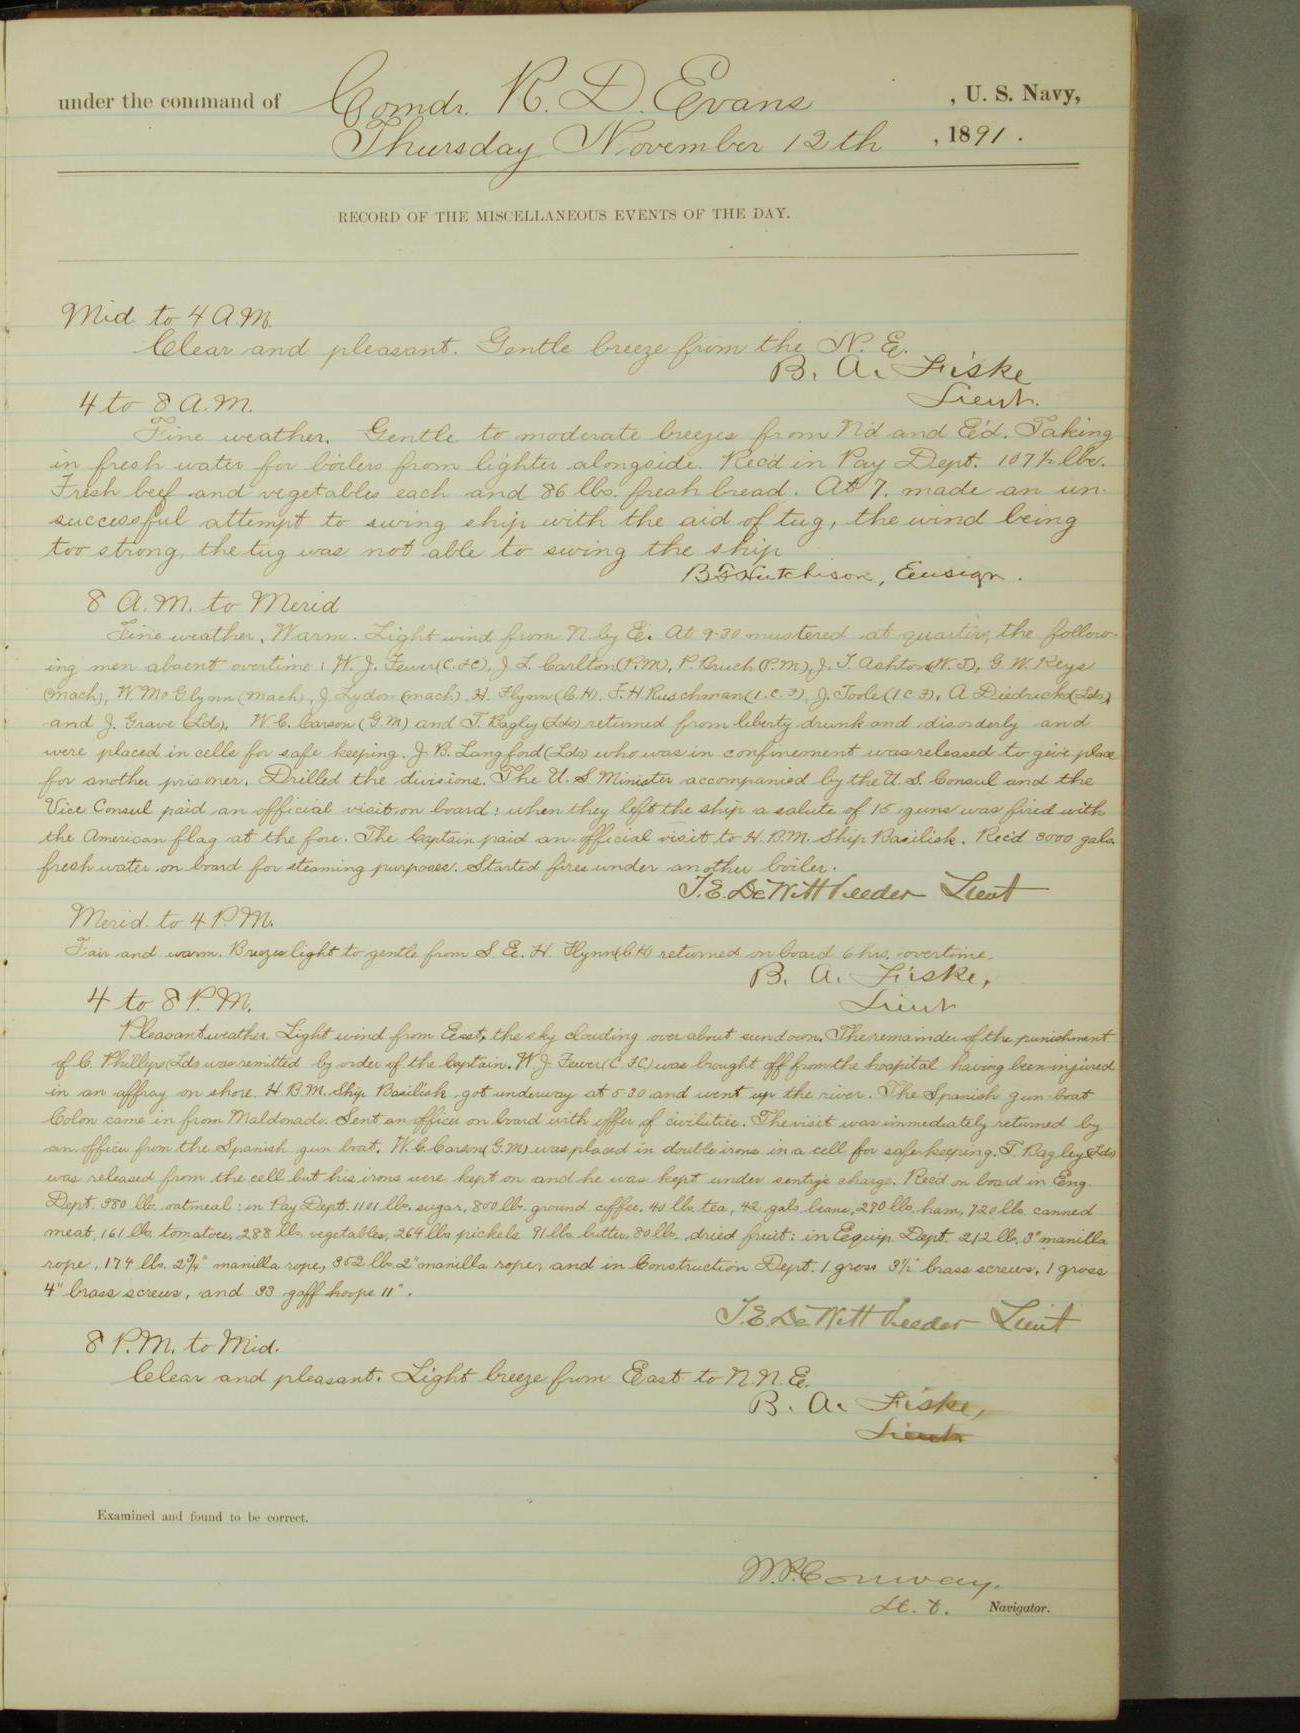 under the command of Comdr. R. D. Evans , U. S. Navy,
Thursday November 12th , 1891.
RECORD OF THE MISCELLANEOUS EVENTS OF THE DAY.
Mid. to 4 A.M.
Clear and pleasant. Gentle breeze from the N. E.
B. A. Fiske
Lieut.
4 to 8 A.M.
Fine weather. Gentle to moderate breezes from N'd and E'd. Taking
in fresh water for boilers from lighter alongside. Rec'd in Pay Dept. 107½ lbs.
Fresh beef and vegetables each and 86 lbs. fresh bread. At 7. made an un-
successful attempt to swing ship with the aid of tug, the wind being
too strong, the tug was not able to swing the ship
B F Hutchison, Ensign.
8 A.M. to Merid
Fine weather, Warm. Light wind from N. by E. At 9-30 mustered at quarters, the follow-
ing men absent overtime: W. J. Fewer (C.F.C), J L. Carlton (P.M), P. Bruch (P.M), J. T. Ashton (W.T), G. W. Keys
(Mach), W McGlynn (Mach), J Lydon (Mach), H. Flynn (C.H). F. H. Ruschman (1.C.F), J. Toole (1 C F), A Diedricks (Lds),
and J. Grave (Lds). W. C. Carson (G.M) and T. Bagley (Lds) returned from liberty drunk and disorderly and
were placed in cells for safe keeping. J B. Langford (Lds) who was in confinement was released to give place
for another prisoner. Drilled the divisions. The U. S Minister accompanied by the U. S. Consul and the
Vice Consul paid an official visit on board: when they left the ship a salute of 15 guns was fired with
the American flag at the fore. The Captain paid an official visit to H. B. M. Ship Basilisk. Rec'd 3000 gals.
fresh water on board for steaming purposes. Started fires under another boiler.
T. E. DeWitt Veeder Lieut
Merid. to 4 P.M.
Fair and warm. Breezes light to gentle from S. E. H. Flynn (C.H) returned on board 6 hrs. overtime.
B. A. Fiske,
Lieut
4 to 8 P.M.
Pleasant weather. Light wind from East, the sky clouding over about sundown. The remainder of the punishment
of C. Phillips (Lds was remitted by order of the Captain. W. J Fewer (C. F.C) was brought off from the hospital having been injured
in an affray on shore. H. B. M. Ship Basilisk got underway at 5-30 and went up the river. The Spanish gun boat
Colon came in from Maldonado. Sent an officer on board with offer of civilities. The visit was immediately returned by
an officer from the Spanish gun boat. W. C. Carson (G.M) was placed in double irons in a cell for safe keeping. T. Bagley (Lds)
was released from the cell but his irons were kept on and he was kept under sentry's charge. Rec'd on board in Eng.
Dept. 980 lbs. oatmeal: in Pay Dept. 1101 lbs. sugar, 800 lbs. ground coffee, 40 lbs. tea, 42 gals beans, 290 lbs. ham, 720 lbs. canned
meat, 161 lbs. tomatoes, 288 lbs. vegetables, 264 lbs pickels 91 lbs. butter, 80 lbs. dried fruit: in Equip. Dept. 212 lbs. 3" manilla
rope, 174 lbs. 2¾" manilla rope, 352 lbs. 2" manilla rope, and in Construction Dept. 1 gross 3½" brass screws, 1 gross
4" brass screws, and 33 gaff hoops 11".
T. E. DeWitt Veeder Lieut
8 P.M. to Mid.
Clear and pleasant. Light breeze from East to N. N. E.
B. A. Fiske,
Lieut.
Examined and found to be correct.
W. P. Conway,
Navigator.